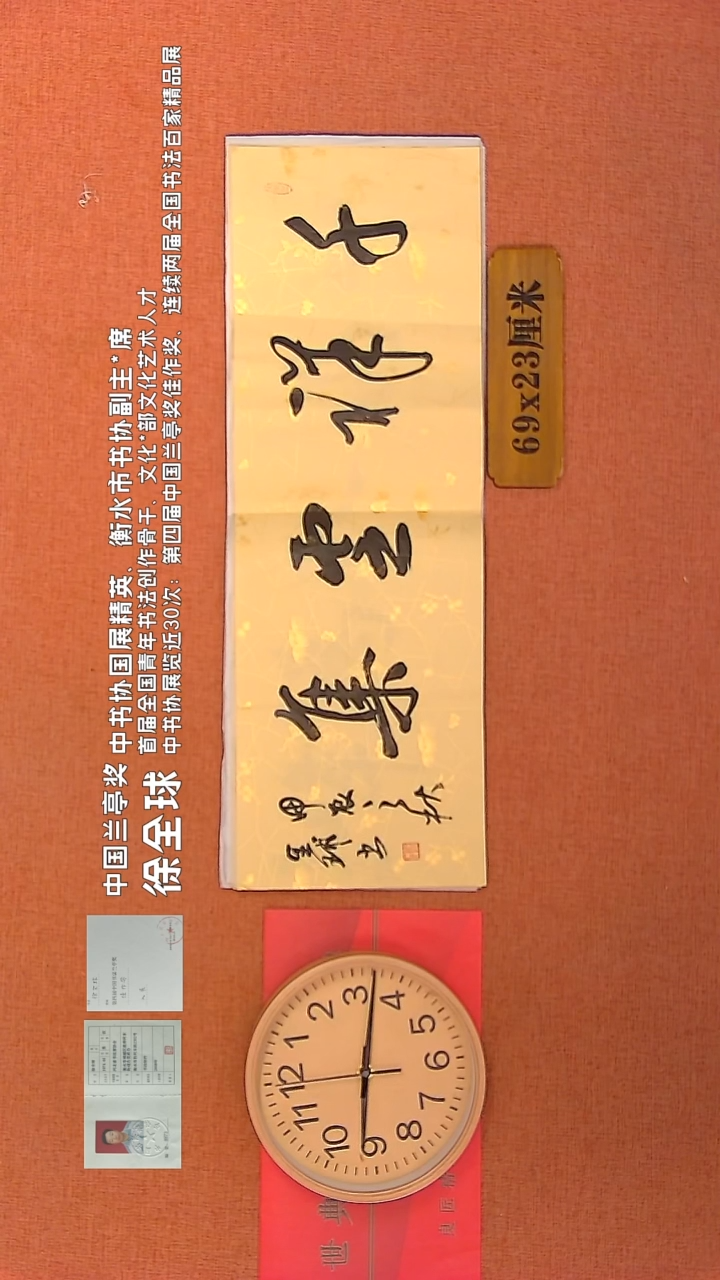 中国兰亭奖
徐全球
中书协国展精英、衡水市书协副主*席
首届全国青年书法创作骨干、文化*部文化艺术人才
中书协展览近30次：第四届中国兰亭奖佳作奖、连续两届全国书法百家精品展
千祥雲集
甲辰之秋
全球书
69x23厘米
12
1
2
3
4
5
6
7
8
9
10
11
世典
良匠精